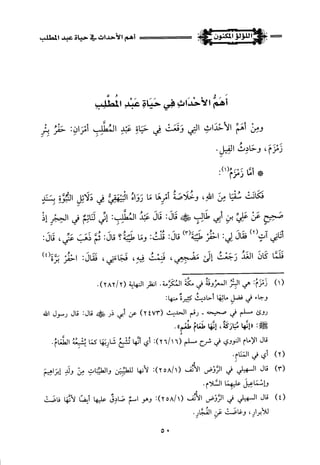 اللؤلؤ المكنون
أهم الأحداث في حياة عبد المطلب
أَهَمُّ الأَحْدَاثِ فِي حَيَاةِ عَبْدِ المُطَّلِبِ
وَمِنْ أَهَمِّ الأَحْدَاثِ التِي وَقَعَتْ فِي حَيَاةِ عَبْدِ المُطَّلِبِ أَمْرَانِ: حَفْرُ بِئْرِ
زَمْزَمَ، وحَادِثُ الفِيلِ.
* أمَّا زَمْزَمُ(١):
فَكَانَتْ سُقْيَا مِنَ اللهِ، وخُلَاصَةُ أَمْرِهَا مَا رَوَاهُ البَيْهَقِيُّ فِي دَلَائِلِ النُّبُوَّةِ بِسَنَدٍ
صَحِيحٍ عَنْ عَلِيِّ بنِ أَبِي طَالِبٍ ﵁ قَالَ: قَالَ عَبْدُ المُطَّلِبِ: إِنِّي لَنَائِمٌ فِي الحِجْرِ إِذْ
أَتَانِي آتٍ(٢) فَقَالَ لِي: احْفُرْ طَيْبَةَ(٣) قَالَ: قُلْتُ: ومَا طَيْبَةُ؟ قَالَ: ثُمَّ ذَهَبَ عَنِّي، قَالَ:
فَلَمَّا كَانَ الغَدُ رَجَعْتُ إِلَى مَضْجَعِي، فَنِمْتُ فِيهِ، فَجَاءَنِي، فَقَالَ: احْفُرْ بَرَّةَ(٤)
(١) زَمْزَمُ: هي البِئْرُ المعرُوفَةُ في مكَّةَ المُكَرَّمة. انظر النهاية (٢/٢٨٢).
وجاء في فضلِ مائِهَا أحاديثُ كثيرةٌ منها:
روى مسلم في صحيحه ـ رقم الحديث (٢٤٧٣) عن أبي ذر ﵁ قال: قال رسول الله
ﷺ: «إنَّهَا مُبَارَكَةٌ، إنَّهَا طَعَامُ طُعْمٍ».
قال الإمام النووي في شرح مسلم (١٦/٢٦): أي أنَّها تُشْبعُ شَارِبَهَا كمَا يُشْبِعُهُ الطَّعَامُ.
(٢) أي في المَنَامِ.
(٣) قال السهيلي في الرَّوْض الأُنُف (١/٢٥٨): لأنها للطيِّبِينَ والطيِّبَاتِ مِنْ ولَدِ إبْرَاهِيمَ
وإسْمَاعِيلَ عليهِمَا السَّلام.
(٤) قال السهيلي في الرَّوْض الأُنُف (١/٢٥٨): وهو اسم صَادِقٌ عليها أيضًا لأنَّهَا فَاضَتْ
للأبرارِ، وغَاضَتْ عَنِ الفُجَّارِ.
٥٠